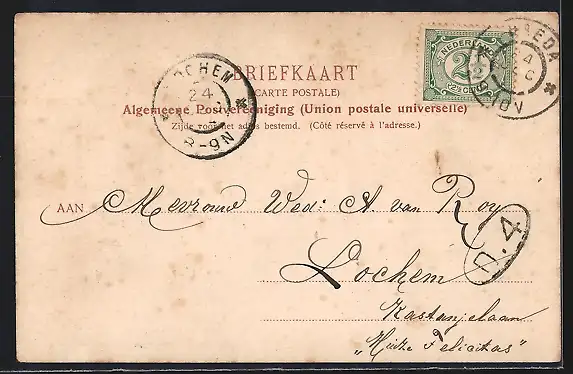 BREDA
24
NEDERLAND
2½
2½ CENT
LOCHEM
24
8-9N
BRIEFKAART
(CARTE POSTALE)
Algemeene Postvereeniging (Union postale universelle)
Zijde voor het adres bestemd. (Côté réservé à l'adresse.)
AAN Mevrouw Wed: A. van Roy
n.4
Lochem
Kastanjelaan
„Felicitas"